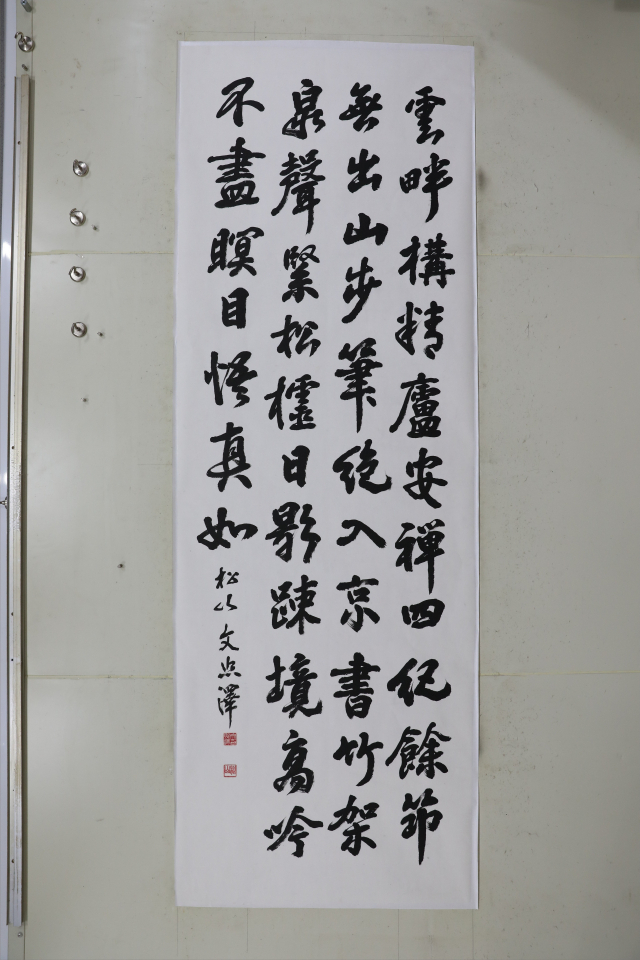 雲畔構精廬安禪四紀餘筇
無出山步筆絶入京書竹架
泉聲緊松櫺日影踈境高吟
不盡瞑目悟真如
松 文点澤